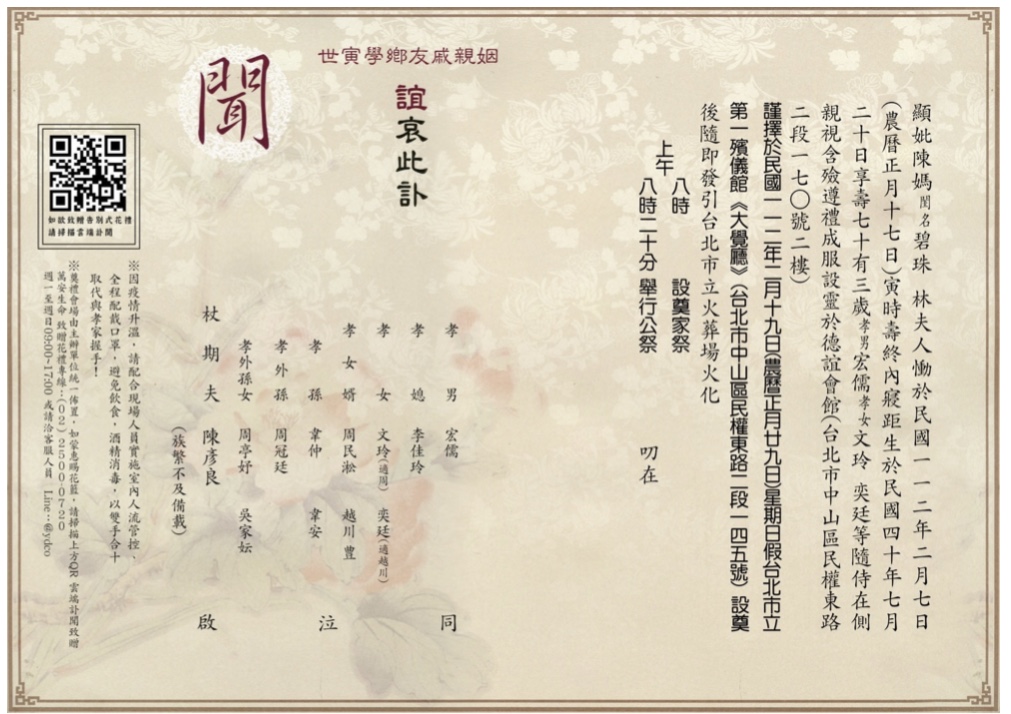 顯妣陳媽閨名碧珠 林夫人慟於民國一一二年二月七日
(農曆正月十七日)寅時壽終內寢距生於民國四十年七月
二十日享壽七十有三歲孝男宏儒孝女文玲 奕廷等隨侍在側
親視含殮遵禮成服設靈於德誼會館(台北市中山區民權東路
二段一七〇號二樓)
謹擇於民國一一二年二月十九日(農曆正月廿九日)星期日假台北市立
第一殯儀館《大覺廳》(台北市中山區民權東路二段一四五號)設奠
上午 八時 設奠家祭
八時二十分 舉行公祭
後隨即發引台北市立火葬場火化
叨在
世寅學鄉友戚親姻
誼哀此訃
聞
孝男 宏儒
孝媳 李佳玲
孝女 文玲(適周) 奕廷(適越川)
孝女婿 周民淞 越川豊
孝孫 韋仲 韋安
孝外孫 周冠廷
孝外孫女 周亭妤 吳家妘
杖期夫 陳彥良
(族繁不及備載)
同
泣
啟
如欲致贈告別式花禮
請掃描雲端訃聞
※因疫情升溫，請配合現場人員實施室內人流管控、
全程配戴口罩，避免飲食，酒精消毒，以雙手合十
取代與孝家握手！
※奠禮會場由主辦單位統一佈置，如蒙惠賜花籃，請掃描上方QR 雲端訃聞致贈
萬安生命 致贈花禮專線：(02)2500-0720
週一至週日09:00-17:00 或請洽客服人員 Line：@ydco